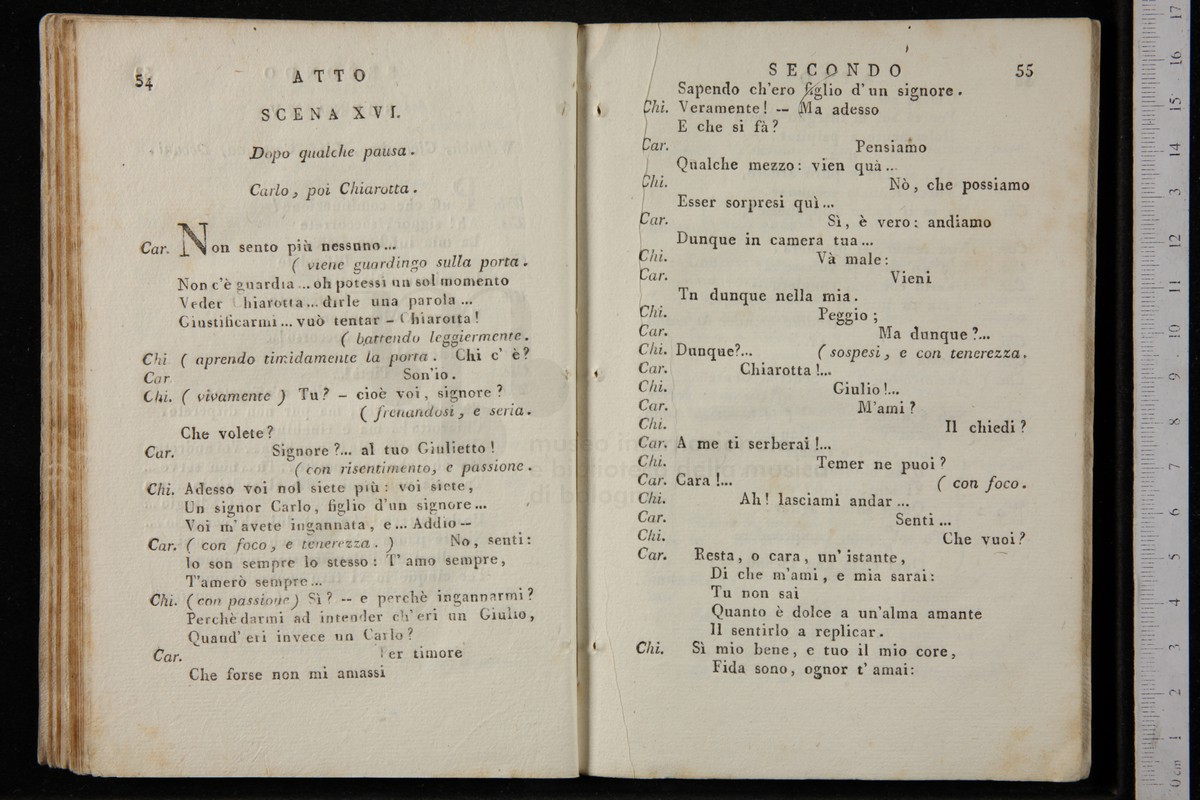 54
ATTO
SCENA XVI.
Dopo qualche pausa.
Carlo, poi Chiarotta.
Car. Non sento più nessuno...
( viene guardingo sulla porta.
Non c'è guardia ... oh potessi un sol momento
Veder Chiarotta... dirle una parola ...
Giustificarmi ... vuò tentar – Chiarotta!
( battendo leggiermente.
Chi ( aprendo timidamente la porta. Chi c' è?
Car Son'io.
Chi. ( vivamente ) Tu? – cioè voi, signore?
( frenandosi, e seria.
Che volete?
Car. Signore?... al tuo Giulietto!
( con risentimento, e passione.
Chi. Adesso voi nol siete più: voi siete,
Un signor Carlo, figlio d'un signore...
Voi m'avete ingannata, e... Addio --
Car. ( con foco, e tenerezza. ) No, senti:
Io son sempre lo stesso: T'amo sempre,
T'amerò sempre...
Chi. ( con passione) Sì? -- e perchè ingannarmi?
Perchè darmi ad intender ch'eri un Giulio,
Quand' eri invece un Carlo?
Car. Per timore
Che forse non mi amassi
SECONDO 55
Sapendo ch'ero figlio d'un signore.
Chi. Veramente! -- Ma adesso
E che si fà?
Car. Pensiamo
Qualche mezzo: vien quà...
Chi. Nò, che possiamo
Esser sorpresi quì...
Car. Sì, è vero: andiamo
Dunque in camera tua...
Chi. Và male:
Car. Vieni
Tn dunque nella mia.
Chi. Peggio;
Car. Ma dunque?...
Chi. Dunque?... ( sospesi, e con tenerezza.
Car. Chiarotta!...
Chi. Giulio!...
Car. M'ami?
Chi. Il chiedi?
Car. A me ti serberai!...
Chi. Temer ne puoi?
Car. Cara!... ( con foco.
Chi. Ah! lasciami andar...
Car. Senti...
Chi. Che vuoi?
Car. Resta, o cara, un' istante,
Di che m'ami, e mia sarai:
Tu non sai
Quanto è dolce a un'alma amante
Il sentirlo a replicar.
Chi. Sì mio bene, e tuo il mio core,
Fida sono, ognor t' amai:
museo in
e biblioteca della musica
di bologna
0 cm 1 2 3 4 5 6 7 8 9 10 11 12 13 14 15 16 17